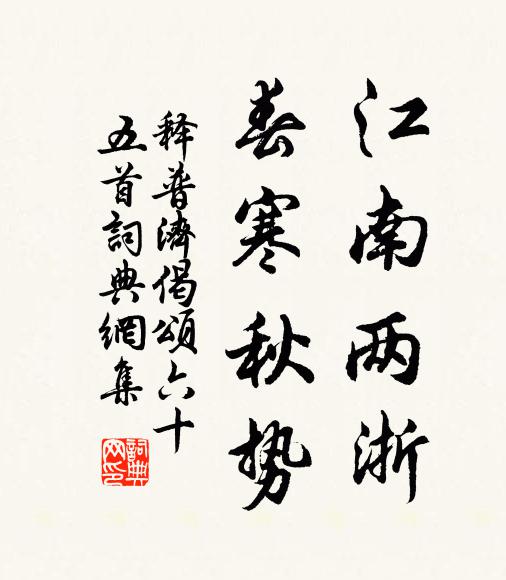 江南两浙
春寒秋势
释普濟偈頌六十
五首詞典網集
詞典
网印